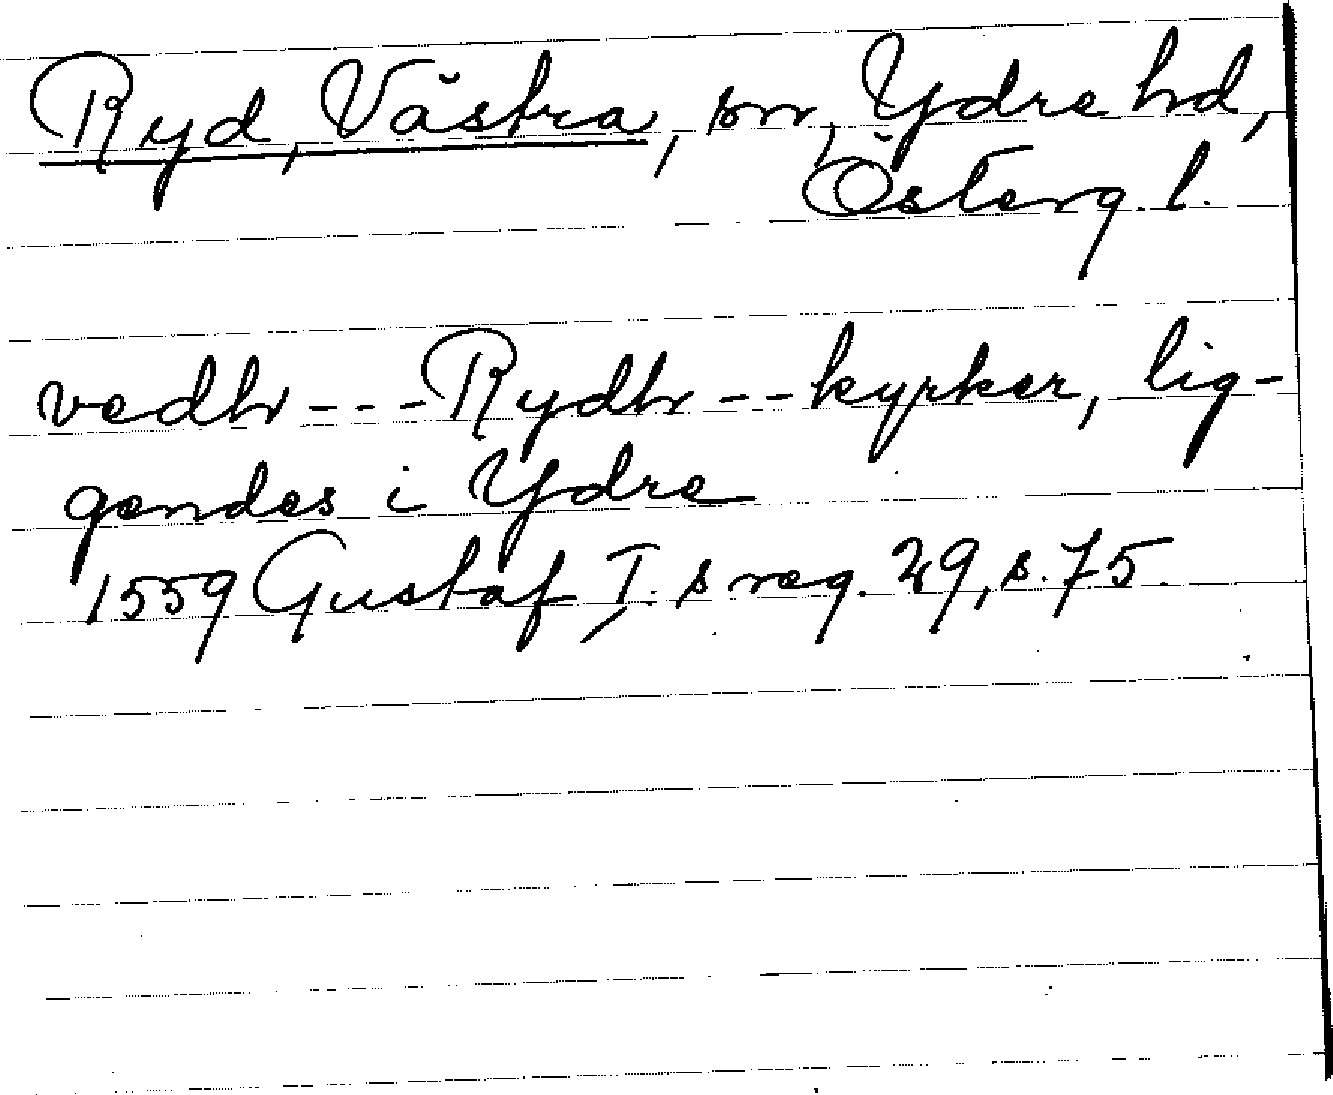 Ryd, Västra, sn, Ydre hd,
Österg. l.
vedh --- Rydh -- kyrker, lig-
gendes i Ydre
1559 Gustaf I:s reg. 29, s. 75.